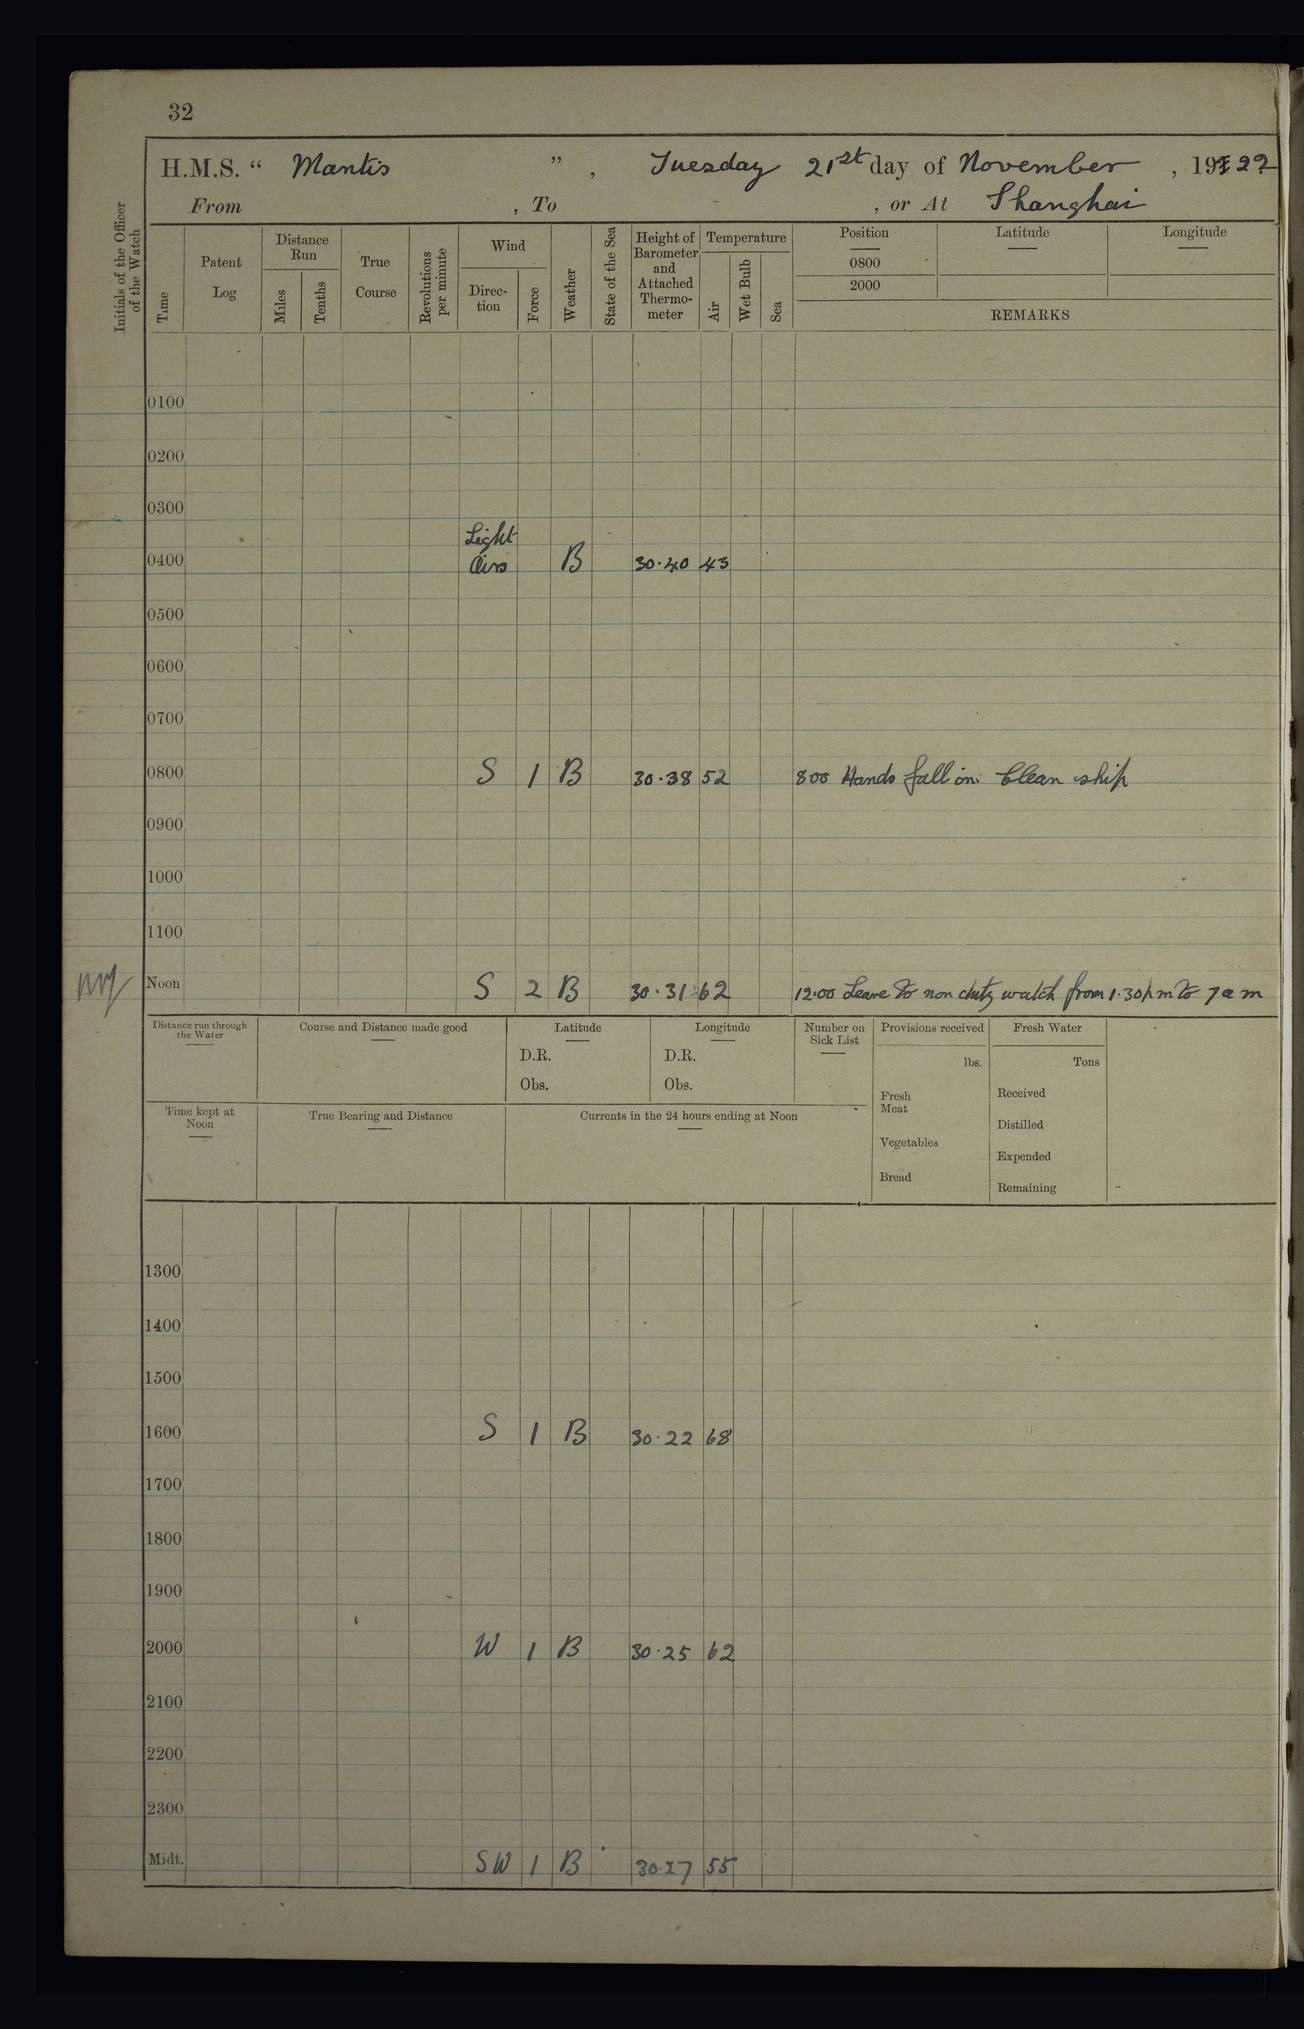 32
H.M.S. “ Mantis ”, Tuesday 21st day of November, 1922
From , To , or At Shanghai
Initials of the Officer of the Watch
Time
Patent Log
Distance Run
Miles
Tenths
True Course
Revolutions per minute
Wind
Direc-tion
Force
Weather
State of the Sea
Height of Barometer and Attached Thermo-meter
Temperature
Air
Wet Bulb
Sea
Position
0800
2000
Latitude
Longitude
REMARKS
0100
0200
0300
Light
0400 Airs B 30·40 43
0500
0600
0700
0800 S 1 B 30·38 52 800 Hands fall in. Clean ship
0900
1000
1100
Noon S 2 B 30·31 62 12·00 Leave to non duty watch from 1·30pm to 7am
Distance run through the Water
Course and Distance made good
Latitude
D.R.
Obs.
Longitude
D.R.
Obs.
Number on Sick List
Provisions received
lbs.
Fresh Meat
Vegetables
Bread
Fresh Water
Tons
Received
Distilled
Expended
Remaining
Time kept at Noon
True Bearing and Distance
Currents in the 24 hours ending at Noon
1300
1400
1500
1600 S 1 B 30·22 68
1700
1800
1900
2000 W 1 B 30·25 62
2100
2200
2300
Midt. SW 1 B 30·27 55